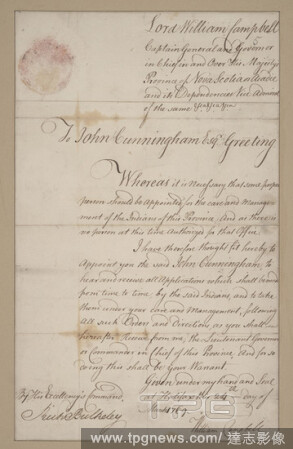 Lord William Campbell
Captain General and Governor
in Chief in and Over His Majesty's
Province of Nova Scotia
and its Dependencies Vice Admiral
of the same
To John Cunningham Esqr Greeting
Whereas it is necessary that some proper
person should be Appointed for the care and Manage-
ment of the Indians of this Province, And as there is
no person at this time Authoriz'd for that Office,
I have therefore thought fit hereby to
Appoint you the said John Cunningham, to
hear and receive all Applications which shall be made
from time to time, by the said Indians, and to take
them under your care and Management, following
all such Orders and Directions, as you shall
hereafter Receive from me, the Lieutenant Governor
or Commander in Chief of this Province, And for so
doing this shall be Your Warrant.
Given under my hand and Seal
at Halifax this day of
1767
By His Excellency's Command,
Richd Bulkeley
TPG
www.tpgnews.com / 達志影像